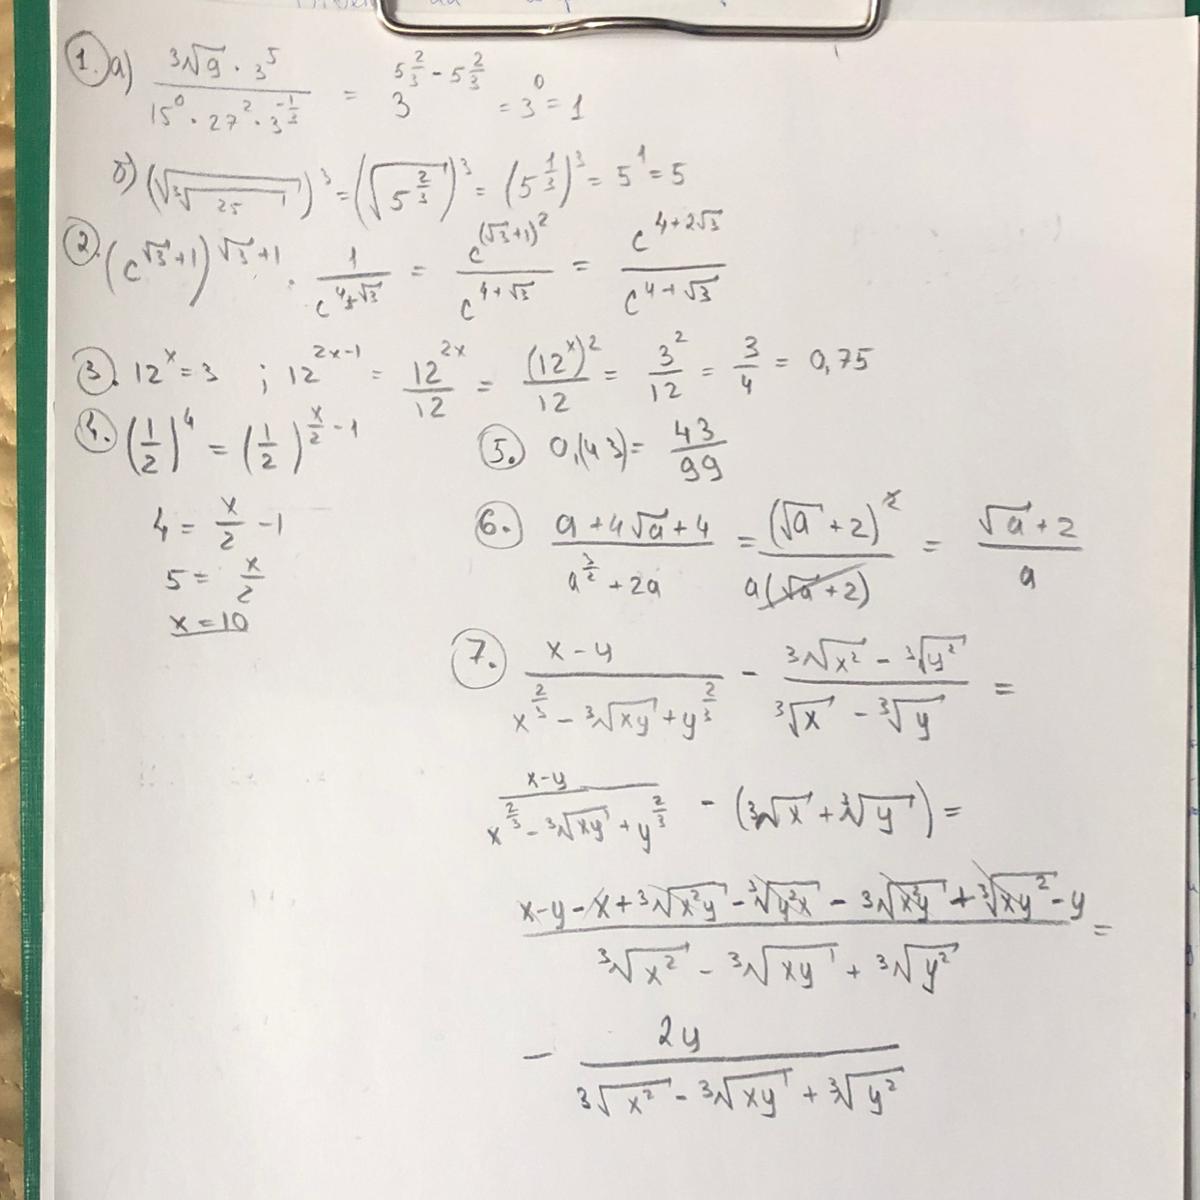 1. а) (∛9 · 3^5)/(15^0 · 27^2 · 3^(-1/3)) = 3^(5 2/3 - 5 2/3) = 3^0 = 1
б) (√(∛25))^3 = (√(5^(2/3)))^3 = (5^(1/3))^3 = 5^1 = 5
2. (c^(√3+1))^(√3+1) · 1/c^(4+√3) = c^((√3+1)^2)/c^(4+√3) = c^(4+2√3)/c^(4+√3)
3. 12^x = 3 ; 12^(2x-1) = 12^(2x)/12 = (12^x)^2/12 = 3^2/12 = 3/4 = 0,75
4. (1/2)^4 = (1/2)^(x/2 - 1)
4 = x/2 - 1
5 = x/2
x = 10
5. 0,(43) = 43/99
6. (a + 4√a + 4)/(a^(3/2) + 2a) = (√a + 2)^2/(a(√a + 2)) = (√a + 2)/a
7. (x - y)/(x^(2/3) - ∛(xy) + y^(2/3)) - (∛(x^2) - ∛(y^2))/(∛x - ∛y) =
(x-y)/(x^(2/3) - ∛(xy) + y^(2/3)) - (∛x + ∛y) =
(x-y-x+∛(x^2y) - ∛(y^2x) - ∛(x^2y) + ∛(xy^2) - y)/(∛(x^2) - ∛(xy) + ∛(y^2)) =
- 2y/(∛(x^2) - ∛(xy) + ∛(y^2))